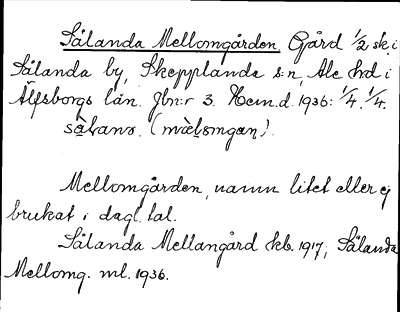 Sålanda Mellomgården, Gård 1/2 sk. i
Sålanda by, Skepplanda s:n, Ale hd i
Älfsborgs län. Jbn:r 3. Hem.d. 1936: 1/4. 1/4.
(mæ̀lomgan).
Mellomgården, namn litet eller ej
brukat i dagl. tal.
Sålanda Mellangård kb. 1917; Sålanda
Mellomg. ml. 1936.